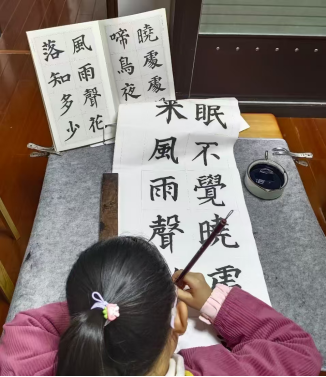 曉處處
啼鳥夜
風雨聲花
落知多少
眠不覺曉處
來風雨聲